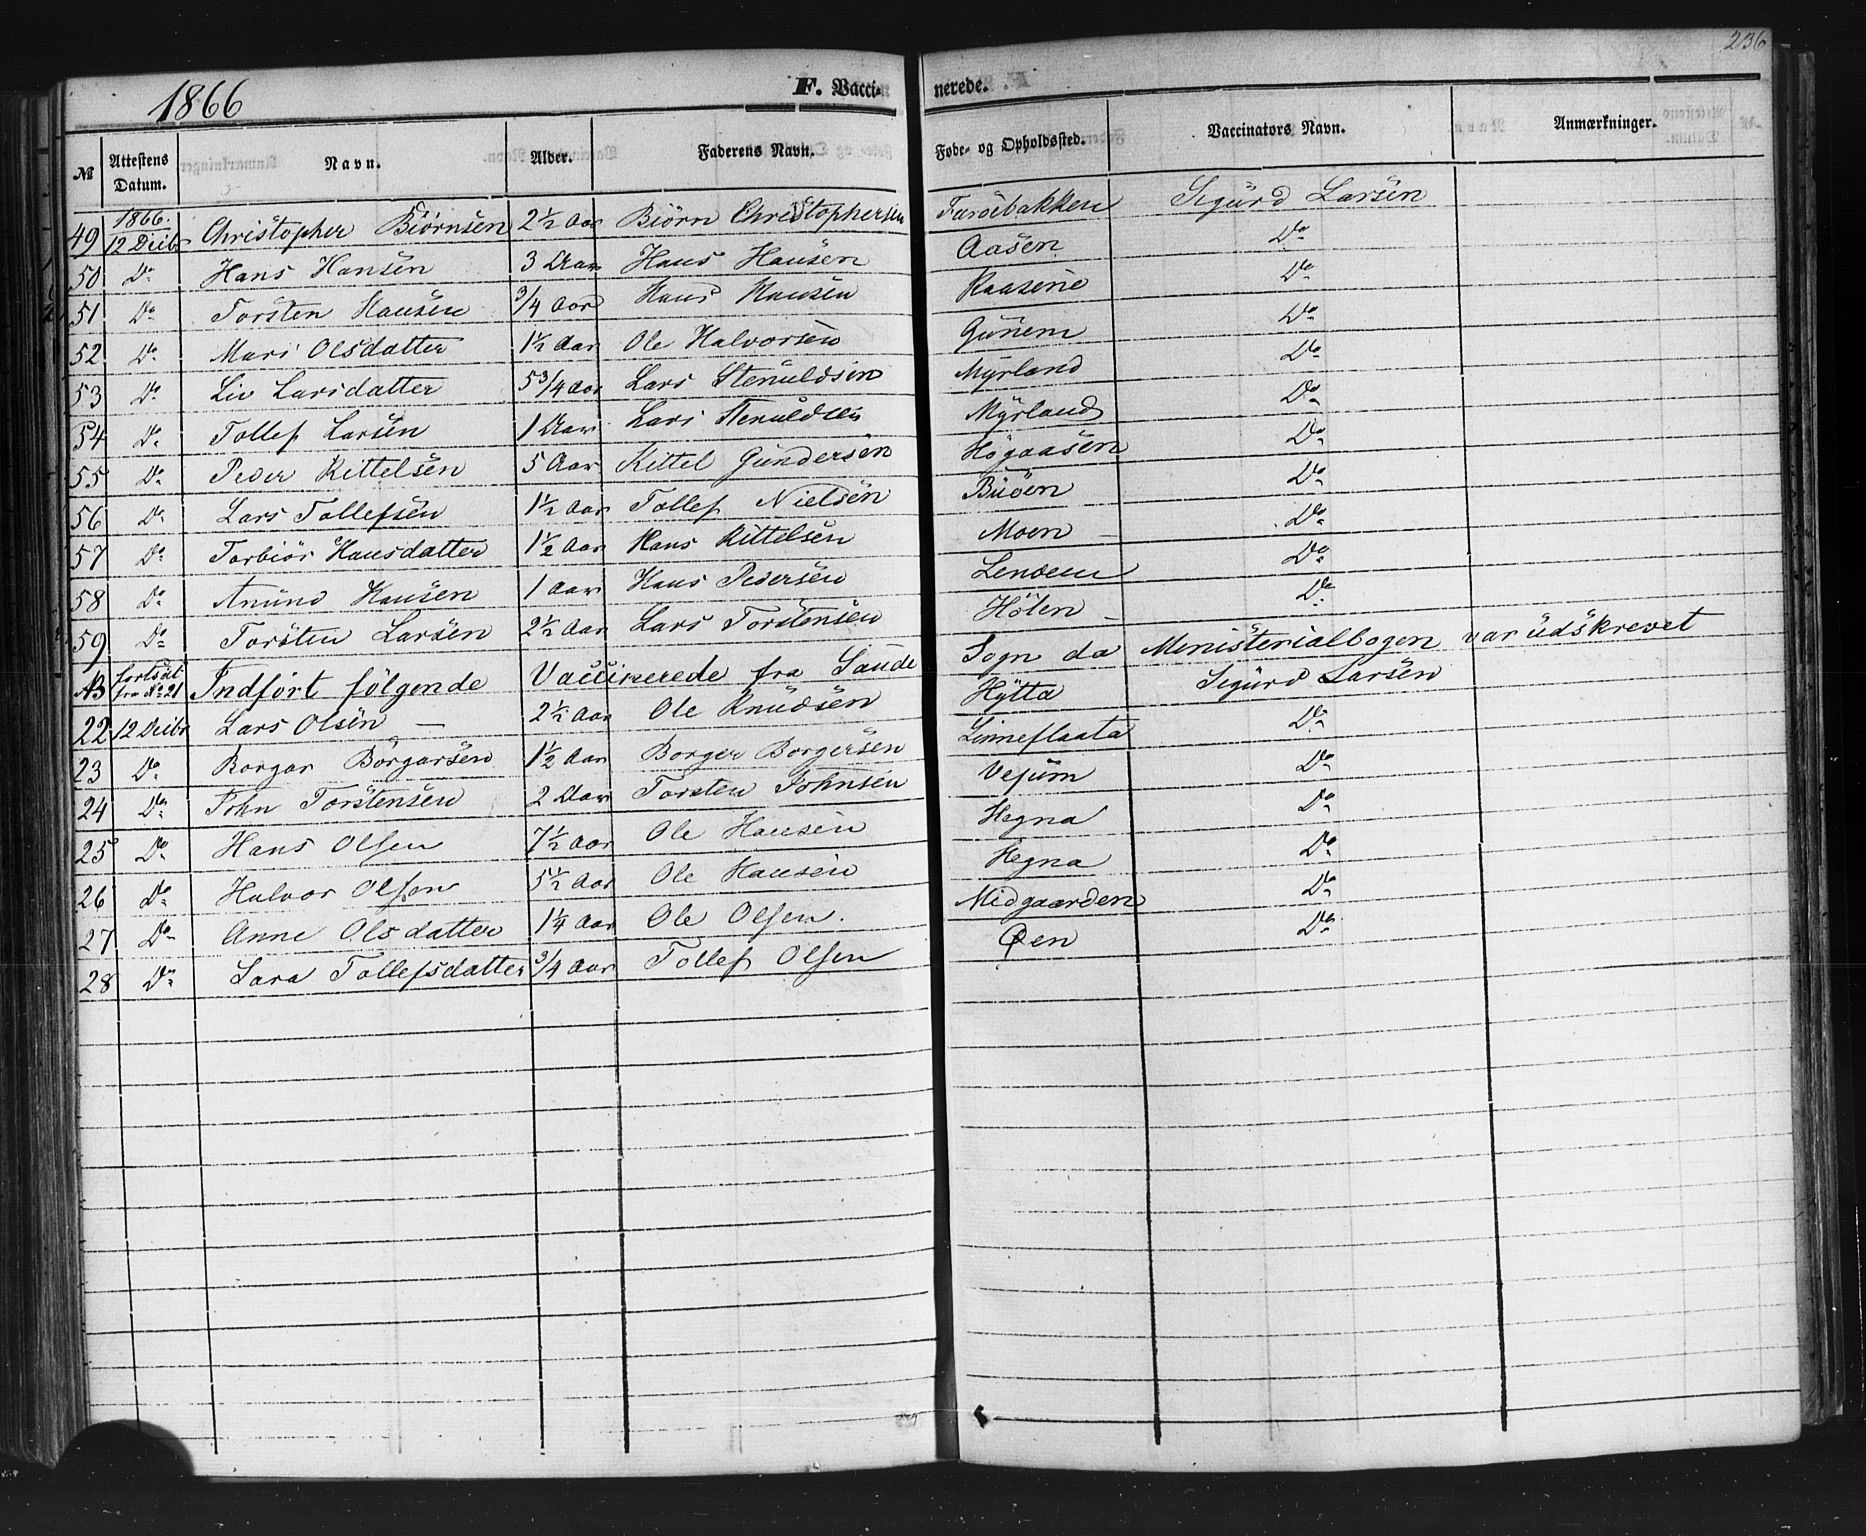 236
1866 F. Vaccinerede.
№ Attestens Datum. Navn. Alder. Faderens Navn. Føde- og Opholdssted. Vaccinators Navn. Anmærkninger.
1866.
49 12 Decbr Christopher Biörnsen 2½ Aar Biörn Christophersen Furöebakken Sigürd Larsen
50 Do Hans Hansen 3 Aar Hans Hansen Aasen Do
51 Do Torsten Hansen 3/4 Aar Hans Hansen Do
52 Do Mari Olsdatter 1½ Aar Ole Halvorsen Günem Do
53 Do Liv Larsdatter 5 3/4 Aar Lars Stenuldsen Myrland Do
54 Do Tollef Larsen 1 Aar Lars Stenuldsen Myrland Do
55 Do Peder Kittelsen 5 Aar Kittel Gündersen Högaasen Do
56 Do Lars Tollefsen 1½ Aar Tollef Nielsen Büöen Do
57 Do Torbiör Hansdatter 1½ Aar Hans Kittelsen Moen Do
58 Do Amünd Hansen 1 Aar Hans Pedersen Lendem Do
59 Do Torsten Larsen 2½ Aar Lars Torstensen Hölen Do
NB fortsat fra No 21 Indfört fölgende Vaccinerede fra Saude Sogn da Ministerialbogen var üdskrevet
22 12 Decbr Lars Olsen 2½ Aar Ole Knüdsen Hytta Sigürd Larsen
23 Do Borgar Borgarsen 1½ Aar Borger Borgersen Linneflaata Do
24 Do John Torstensen 2 Aar Torsten Johnsen Vejüm Do
25 Do Hans Olsen 7½ Aar Ole Hansen Hegna Do
26 Do Halvor Olsen 5½ Aar Ole Hansen Hegna Do
27 Do Anne Olsdatter 1¼ Aar Ole Olsen. Midgaarden Do
28 Do Sara Tollefsdatter 3/4 Aar Tollef Olsen Øen Do